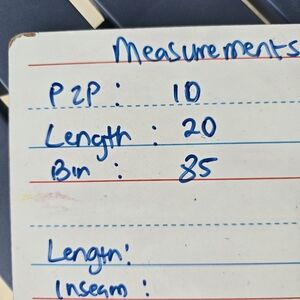 Measurements
P2P : 10
Length : 20
Bin : 85
Length:
Inseam :